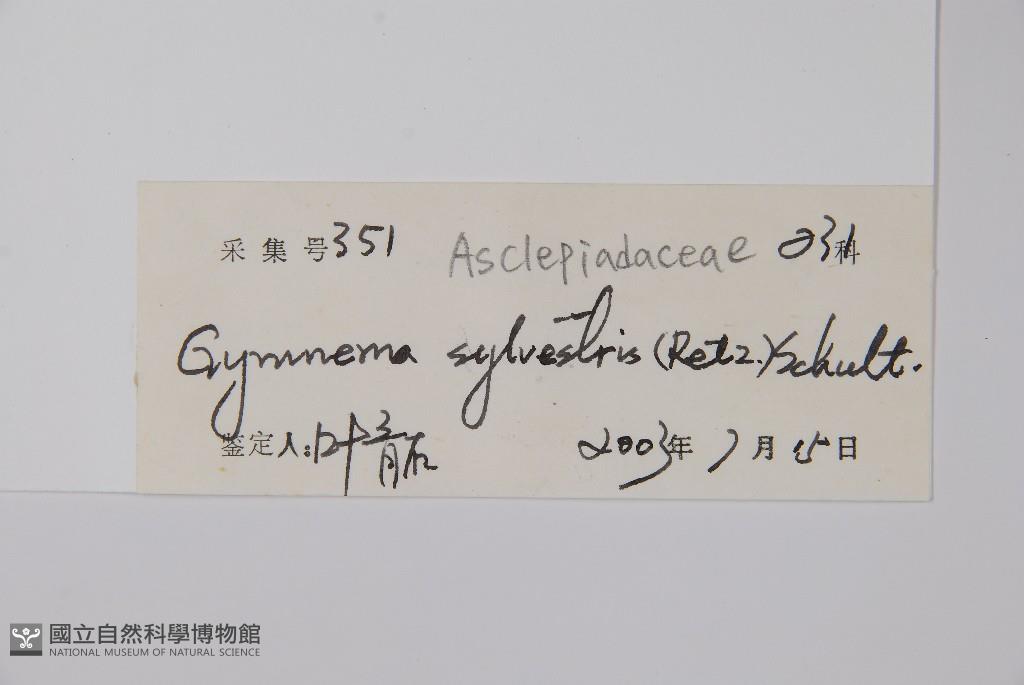 采集号 351 Asclepiadaceae 231科
Gymnema sylvestris (Retz.) Schult.
鉴定人: 叶育石 2003年 7月 15日
國立自然科學博物館
NATIONAL MUSEUM OF NATURAL SCIENCE